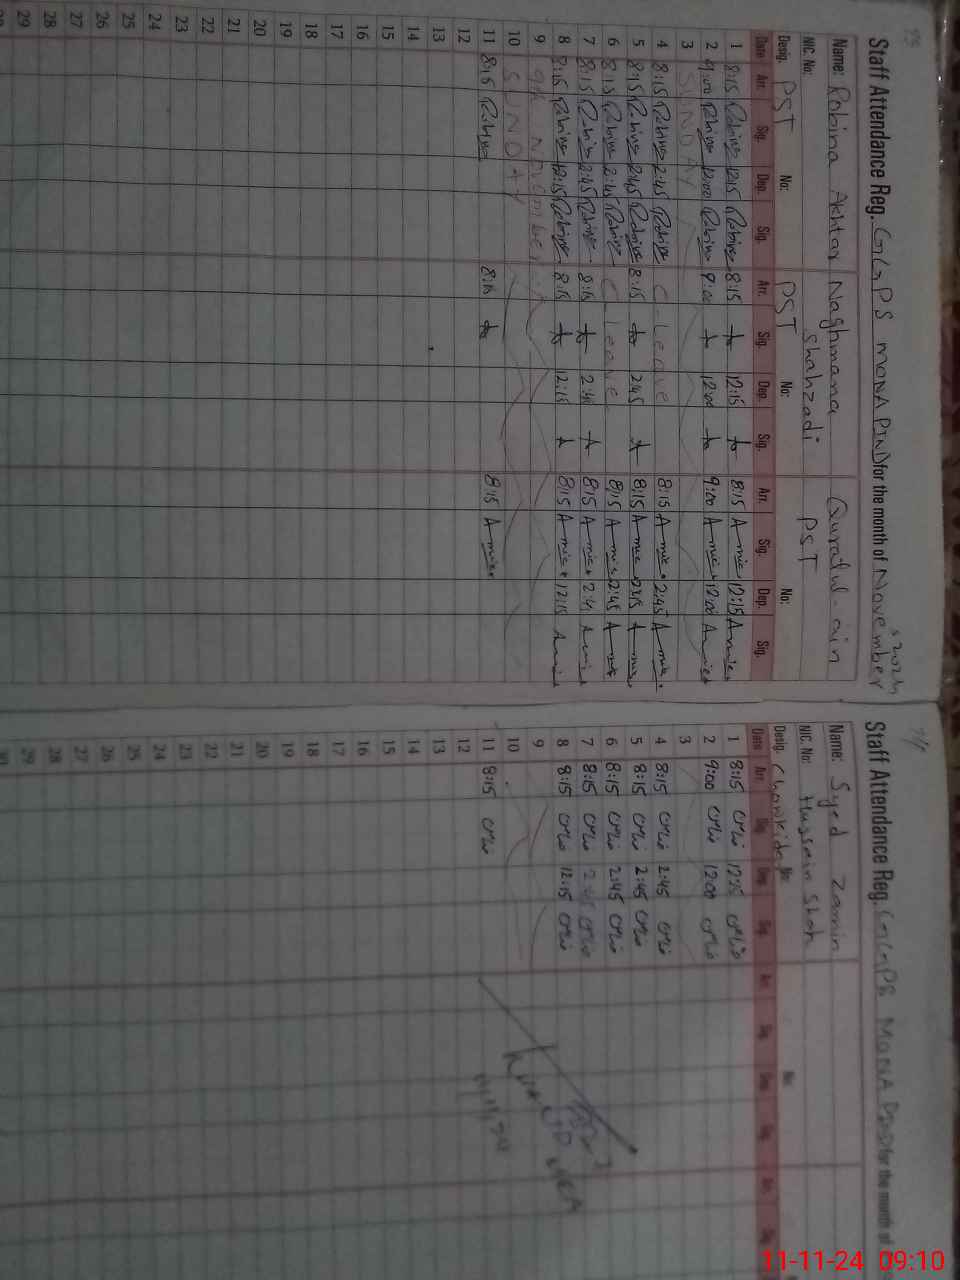 95
Staff Attendance Reg. GGPS MONA PIND for the month of November, 2024
Name: Robina Akhtar Naghmana Shahzadi Quratul-ain
NIC. No:
Desig. PST No: PST No: PST No:
Date Arr. Sig. Dep. Sig. Arr. Sig. Dep. Sig. Arr. Sig. Dep. Sig.
1 8:15 Robina 12:15 Robina 8:15 12:15 8:15 12:15
2 9:00 Robina 12:00 Robina 9:00 12:00 9:00 12:00
3 SUNDAY
4 8:15 Robina 2:45 Robina C-Leave 8:15 2:45
5 8:15 Robina 2:45 Robina 8:15 2:45 8:15 2:45
6 8:15 Robina 2:45 Robina C-Leave 8:15 2:45
7 8:15 Robina 2:45 Robina 8:15 2:45 8:15 2:4
8 8:15 Robina 12:15 Robina 8:15 12:15 8:15 12:15
9 9th November
10 SUNDAY
11 8:15 Robina 8:15 8:15
12
13
14
15
16
17
18
19
20
21
22
23
24
25
26
27
28
29
Staff Attendance Reg. GGPS MONA PIND for the month of
Name: Syed Zamin
NIC. No: Hussain Shah
Desig. Chowkidar No: No:
Date Arr. Sig. Dep. Sig. Arr. Sig. Dep. Sig. Arr. Sig.
1 8:15 12:15
2 9:00 12:00
3
4 8:15 2:45
5 8:15 2:45
6 8:15 2:45
7 8:15 2:45
8 8:15 12:15
9
10
11 8:15
12
13
14
15
16
17
18
19
20
21
22
23
24
25
26
27
28
29
30
11-11-24 09:10